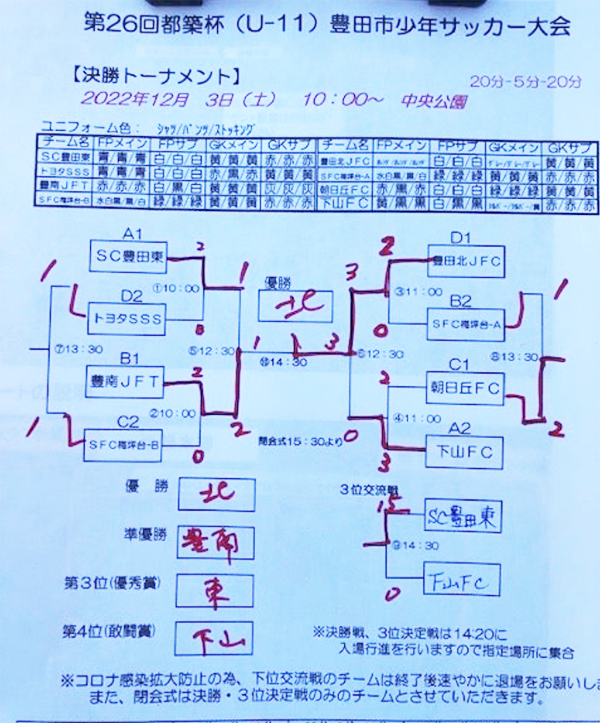 第26回都築杯（U-11）豊田市少年サッカー大会
【決勝トーナメント】
20分-5分-20分
2022年12月 3日（土） 10:00～ 中央公園
ユニフォーム色： シャツ/パンツ/ストッキング
チーム名 FPメイン FPサブ GKメイン GKサブ チーム名 FPメイン FPサブ GKメイン GKサブ
SC豊田東 青/青/青 白/白/白 黄/黄/黄 赤/赤/赤 豊田北JFC 白/白/白 黄/黄/黄
トヨタSSS 青/青/青 白/白/白 赤/黒/赤 黄/黄/黄 SFC梅坪台-A 水白黒/黒/白 緑/緑/緑 黄/黄/黄 赤/赤/赤
豊南JFT 赤/赤/赤 白/黒/白 黄/黄/黄 灰/灰/灰 朝日丘FC 赤/黒/赤 白/白/白 緑/緑/緑 黄/黄/黄
SFC梅坪台-B 水白黒/黒/白 緑/緑/緑 黄/黄/黄 赤/赤/赤 下山FC 黄/黒/黒 白/黒/黒 赤/赤/赤
A1
SC豊田東
2
①10:00
D2
トヨタSSS
0
1
1
⑦13:30
B1
豊南JFT
2
②10:00
C2
SFC梅坪台-B
0
1
2
⑤12:30
1
優勝
北
⑩14:30
3
D1
豊田北JFC
2
③11:00
B2
SFC梅坪台-A
0
3
1
⑧13:30
C1
朝日丘FC
2
④11:00
A2
下山FC
3
0
2
⑥12:30
閉会式15：30より
優　勝 北
準優勝 豊南
第３位(優秀賞) 東
第４位(敢闘賞) 下山
３位交流戦
15
SC豊田東
⑨14:30
0
下山FC
※決勝戦、３位決定戦は14:20に
入場行進を行いますので指定場所に集合
※コロナ感染拡大防止の為、下位交流戦のチームは終了後速やかに退場をお願いし
また、閉会式は決勝・３位決定戦のみのチームとさせていただきます。